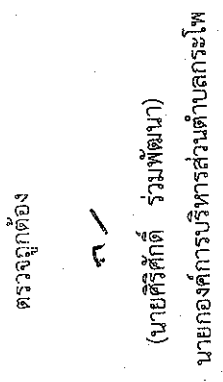 ตรวจถูกต้อง
(นายศิริศักดิ์ ร่วมพัฒนา)
นายกองค์การบริหารส่วนตำบลกระโพ